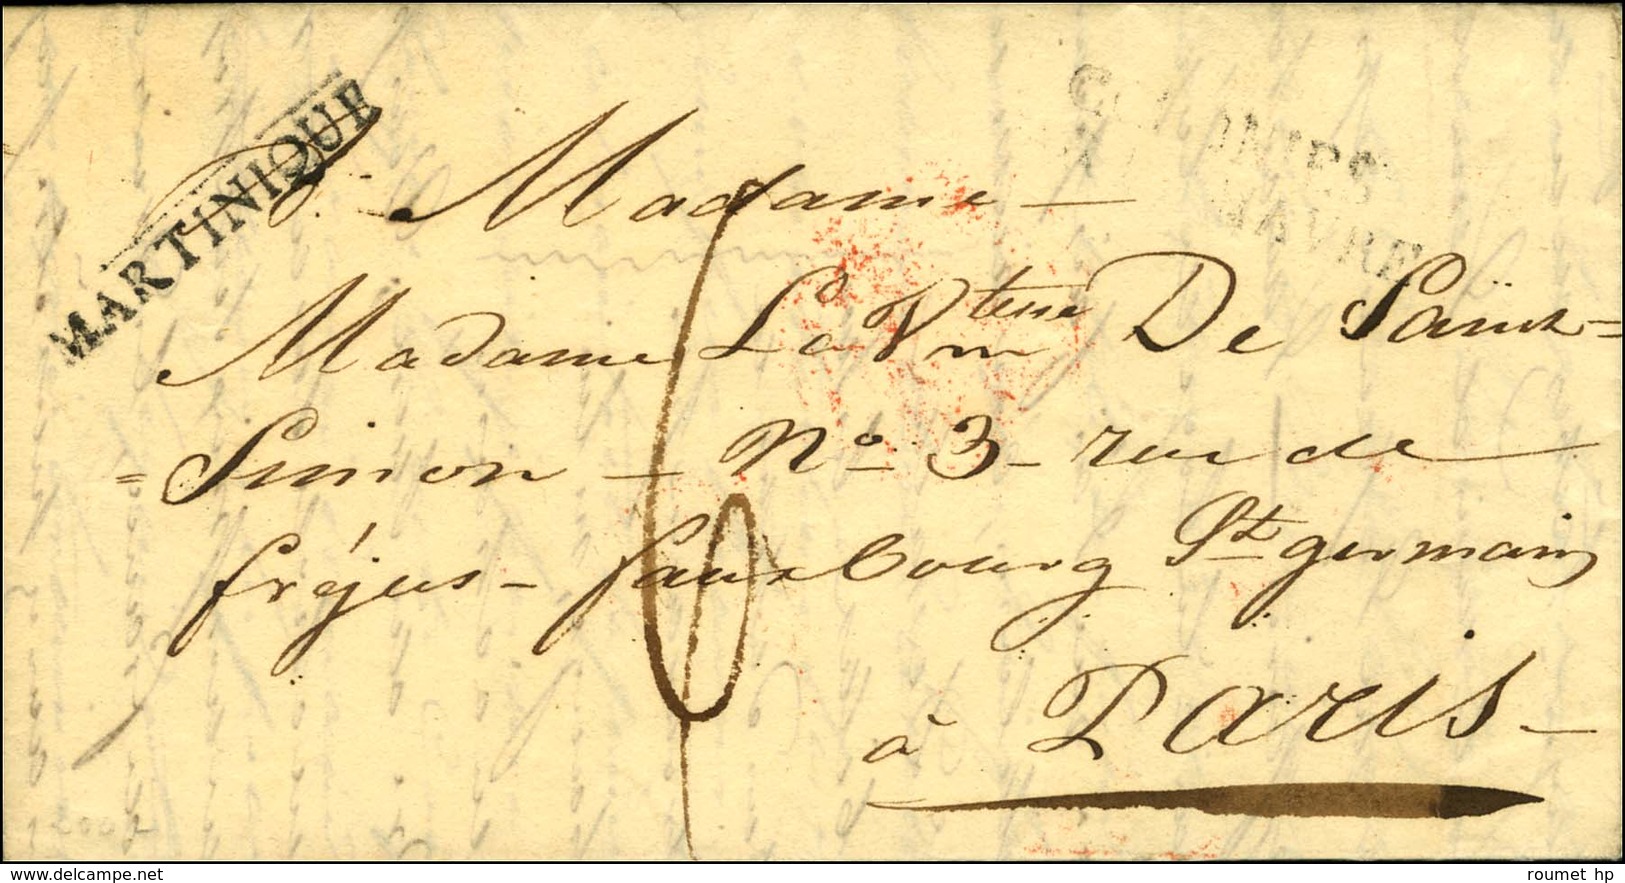 MARTINIQUE
COLONIES
HAVRE
Madame
Madame La Vtesse De Saint=
=Simon — No 3 – rue de
fréjus – fauxbourg St germain
à Paris —
delcampe.net
roumet hp